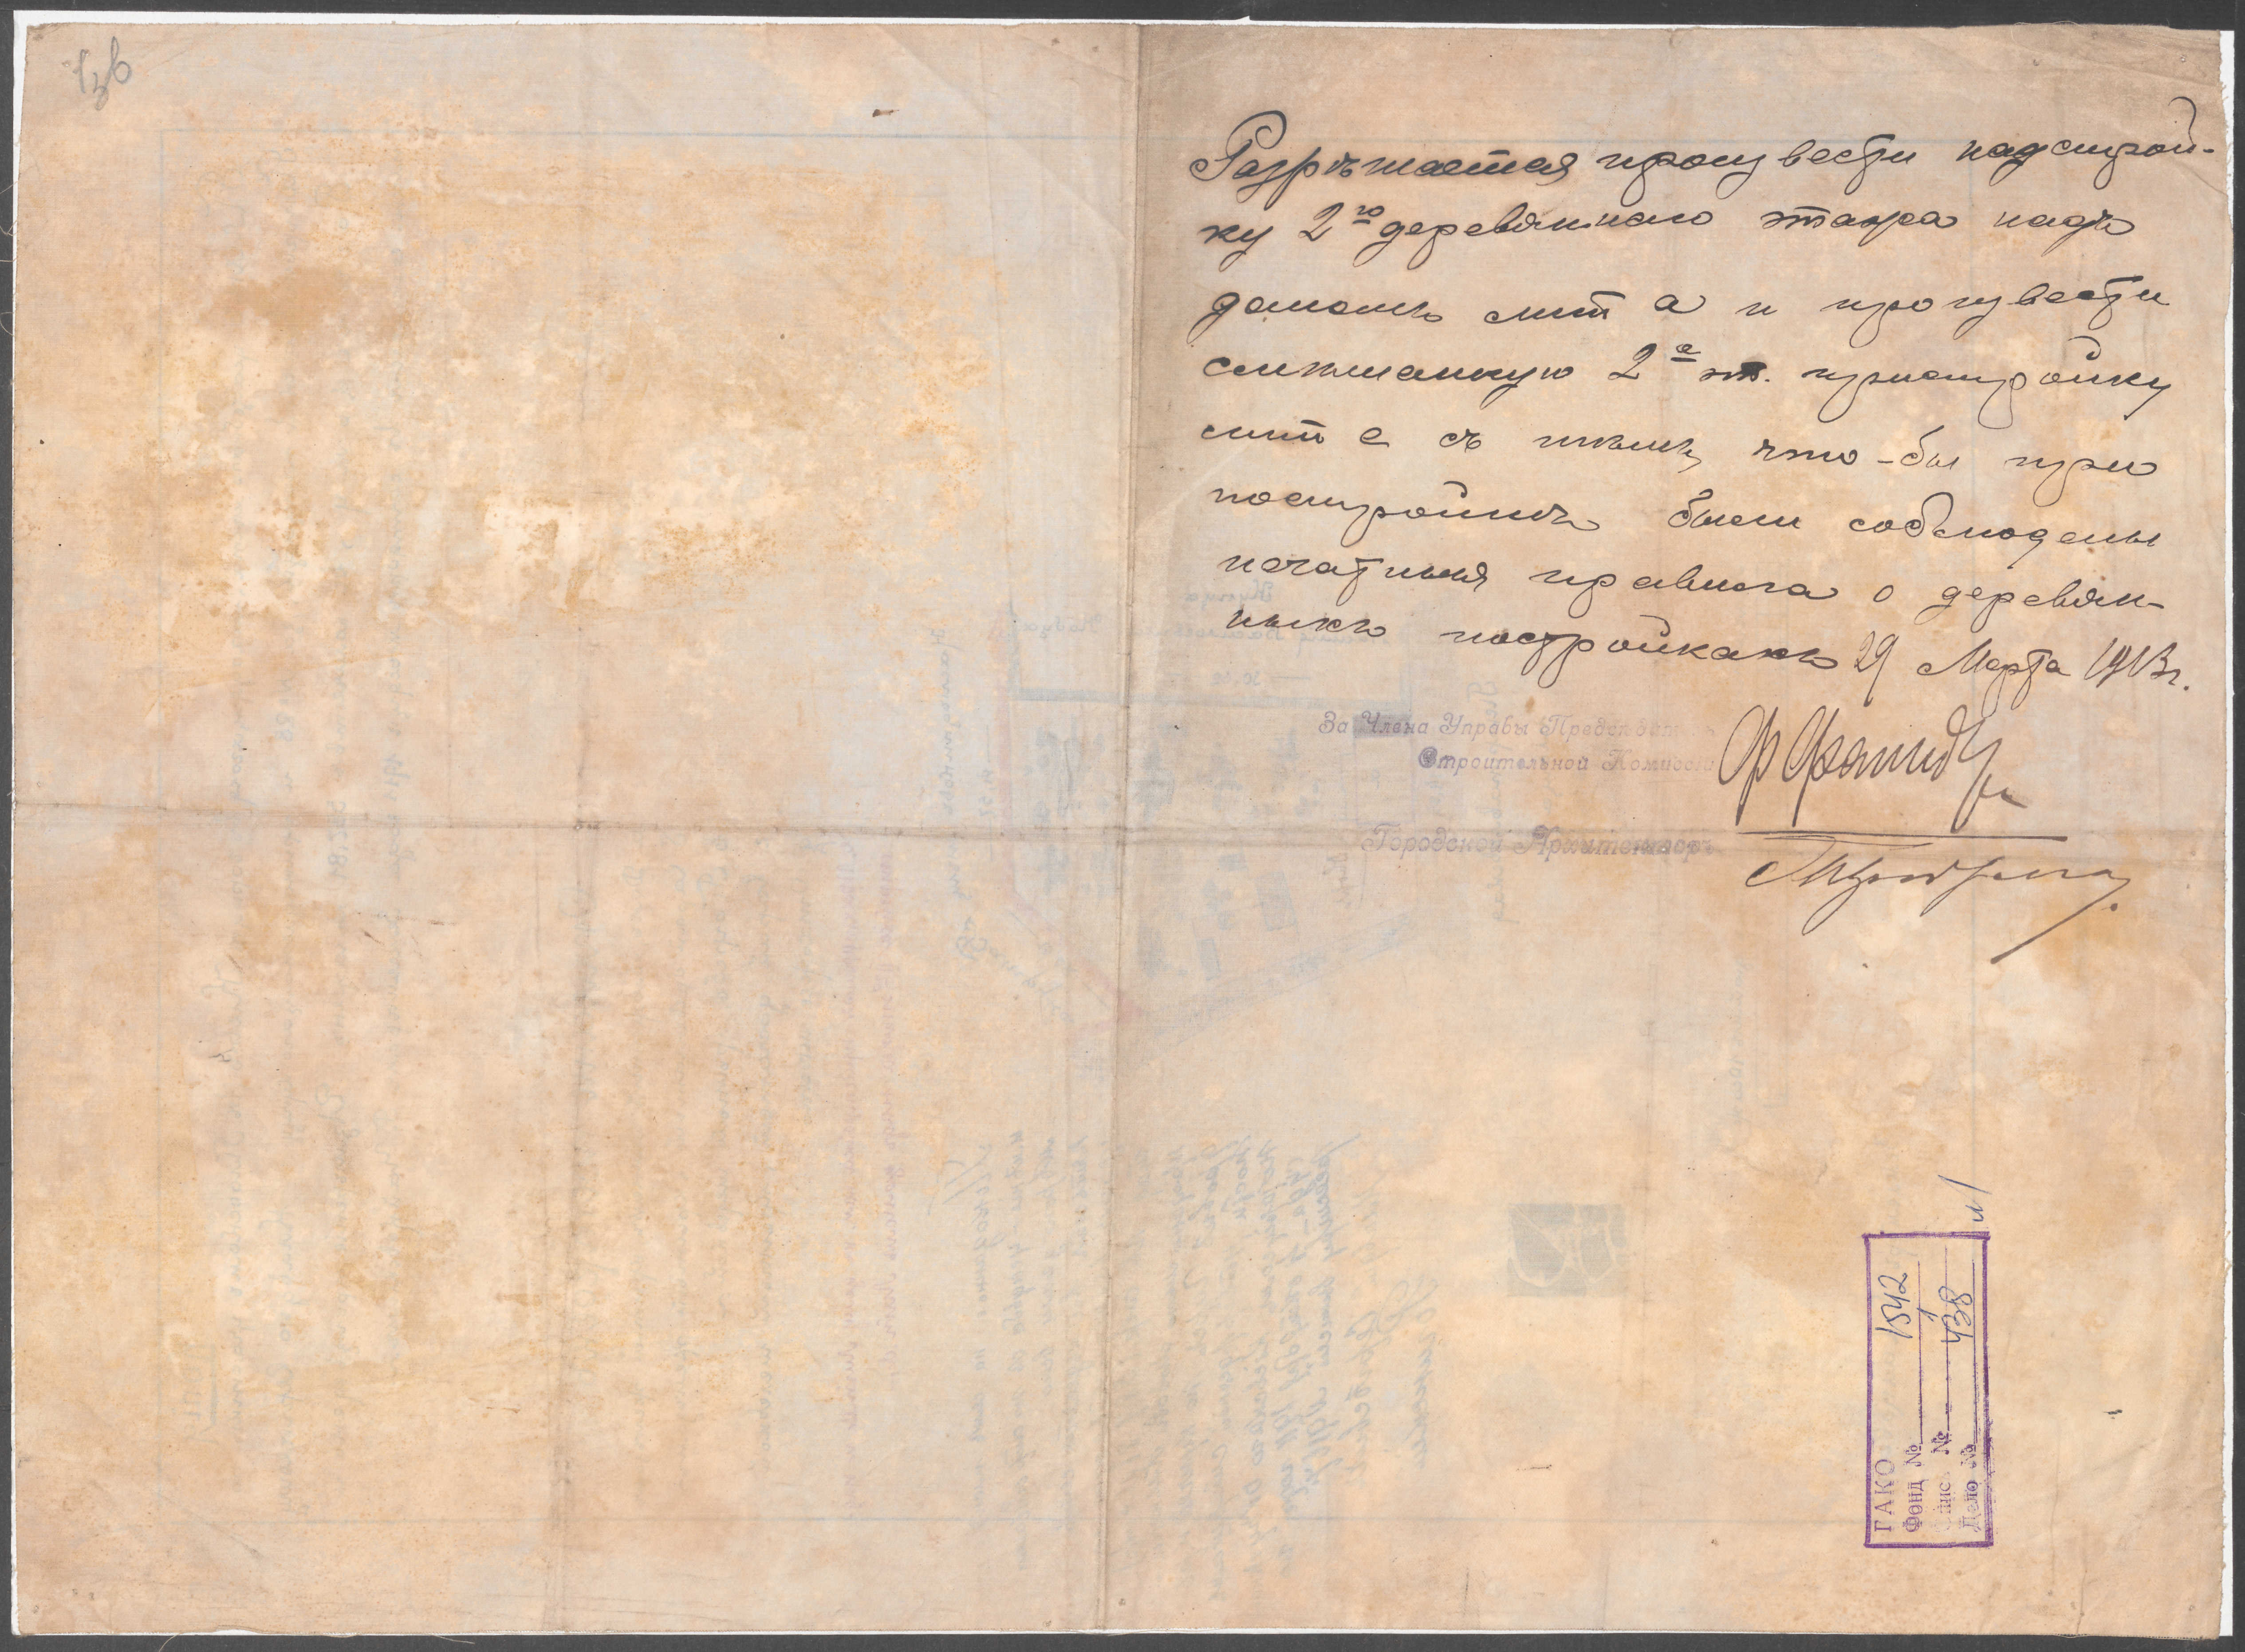 Разрѣшается произвести надстрой-
ку 2го деревяннаго этажа надъ
домомъ лит а и произвести
смѣшанную 2х эт. пристройку
лит е съ тѣмъ, что-бы при
постройкѣ были соблюдены
печатныя правила о деревян-
ныхъ постройкахъ 29 Марта 1913 г.
За Члена Управы Предсѣдат
Строительной Комиссіи
Городской Архитекторъ
ГАКО
Фонд № 1542
Опись № 1
Дело № 438